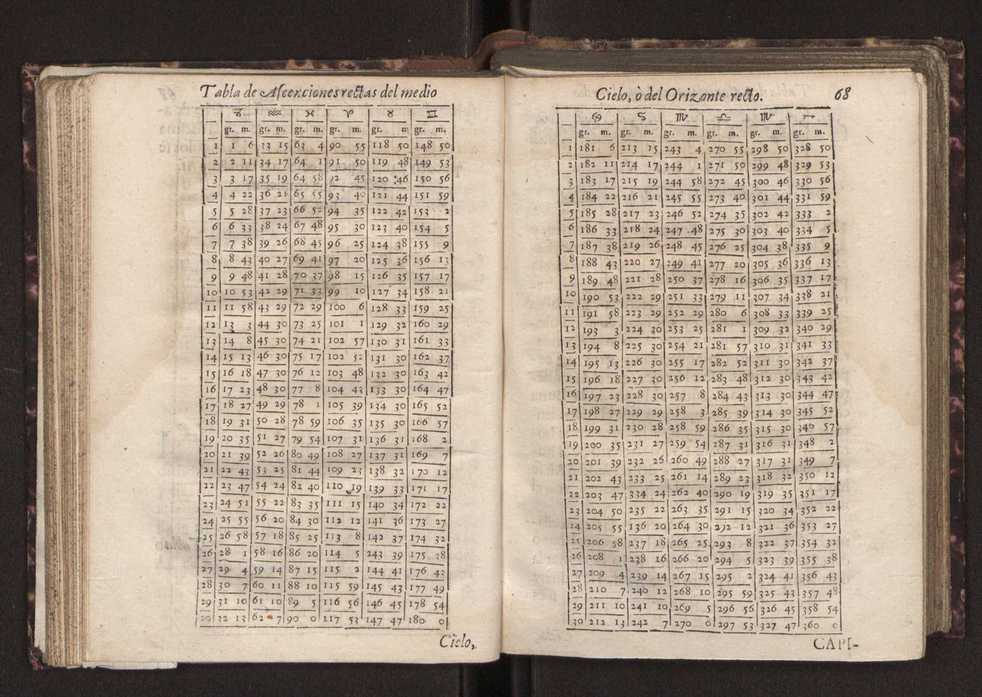 Tabla de Ascenciones rectas del medio
♑ ♒ ♓ ♈ ♉ ♊
gr. m. gr. m. gr. m. gr. m. gr. m gr. m.
1 1 6 33 15 63 4 90 55 118 50 148 50
2 2 11 34 17 64 1 91 50 119 48 149 53
3 3 17 35 19 64 58 92 45 120 46 150 56
4 4 22 36 21 65 55 93 40 121 44 151 59
5 5 28 37 23 66 52 94 35 122 42 153 2
6 6 33 38 24 67 48 95 30 123 40 154 5
7 7 38 39 26 68 45 96 25 124 38 155 9
8 8 43 40 27 69 41 97 20 125 36 156 13
9 9 48 41 28 70 37 98 15 126 35 157 17
10 10 53 42 29 71 33 99 10 127 34 158 21
11 11 58 43 29 72 29 100 6 128 33 159 25
12 13 3 44 30 73 25 101 1 129 32 160 29
13 14 8 45 30 74 21 102 57 130 31 161 33
14 15 13 46 30 75 17 102 52 131 30 162 37
15 16 18 47 30 76 12 103 48 132 30 163 42
16 17 23 48 30 77 8 104 43 133 30 164 47
17 18 27 49 29 78 1 105 39 134 30 165 52
18 19 31 50 28 78 59 106 35 135 30 166 57
19 20 35 51 27 79 54 107 31 136 31 168 2
20 21 39 52 26 80 49 108 27 137 31 169 7
21 22 43 53 25 81 44 109 23 138 32 170 12
22 23 47 54 24 82 40 110 19 139 33 171 17
23 24 51 55 22 83 35 111 15 140 34 172 22
24 25 55 56 20 84 30 112 12 141 36 173 27
25 26 58 57 18 85 25 113 8 142 37 174 32
26 28 1 58 16 86 20 114 5 243 39 175 38
27 29 4 59 14 87 15 115 2 144 41 176 43
28 30 7 60 11 88 10 115 59 145 43 177 49
29 31 10 61 10 89 5 116 56 146 45 178 54
30 32 13 62 7 90 0 117 53 147 47 180 0
Cielo,
Cielo, ò del Orizonte recto. 68
♋ ♌ ♍ ♎ ♏ ♐
gr. m. gr. m. gr. m. gr. m. gr. m. gr. m.
1 181 6 213 15 243 4 270 55 298 50 328 50
2 182 11 214 17 244 1 271 50 299 48 329 53
3 183 17 215 19 244 58 272 45 300 46 330 56
4 184 22 216 21 245 55 273 40 301 44 331 59
5 185 28 217 23 246 52 274 35 302 42 333 2
6 186 33 218 24 247 48 275 30 303 40 334 5
7 187 38 219 26 248 45 276 25 304 38 335 9
8 188 43 220 27 249 41 277 20 305 36 336 13
9 189 48 221 28 250 37 278 16 306 35 337 17
10 190 53 222 29 251 33 279 11 307 34 338 21
11 191 58 223 29 252 29 280 6 308 33 339 25
12 193 3 224 30 253 25 281 1 309 32 340 29
13 194 8 225 30 254 21 281 57 310 31 341 33
14 195 13 226 30 255 17 282 52 311 30 342 37
15 196 18 227 30 256 12 283 48 312 30 343 42
16 197 23 228 30 257 8 284 43 313 30 344 47
17 198 27 229 29 258 3 285 39 314 30 345 52
18 199 31 230 28 258 59 286 35 315 30 346 57
19 200 35 231 27 259 54 287 31 316 31 348 2
20 201 39 232 26 260 49 288 27 317 31 349 7
21 202 43 233 25 261 14 289 23 318 32 350 12
22 203 47 334 24 262 40 290 19 319 35 351 17
23 204 50 235 22 263 35 291 15 320 34 352 22
14 205 55 136 20 264 30 292 12 321 36 353 27
25 206 58 237 18 265 25 293 8 322 37 354 32
26 208 1 238 16 266 20 294 5 323 39 355 38
27 209 4 239 14 267 15 295 2 324 41 356 43
28 210 7 240 12 268 10 295 59 325 43 357 48
29 211 10 241 10 269 5 296 56 326 45 358 54
30 212 13 242 7 270 0 297 53 327 47 360 0
CAPI-